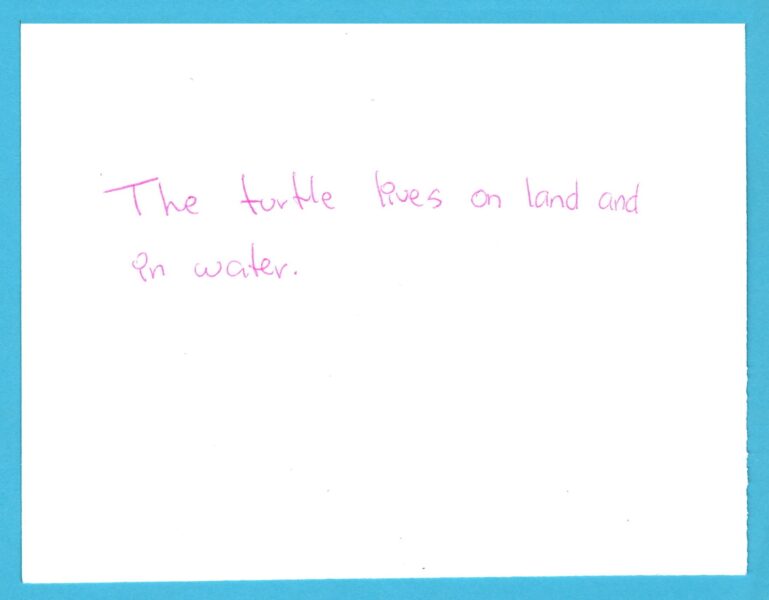 The turtle lives on land and
in water.